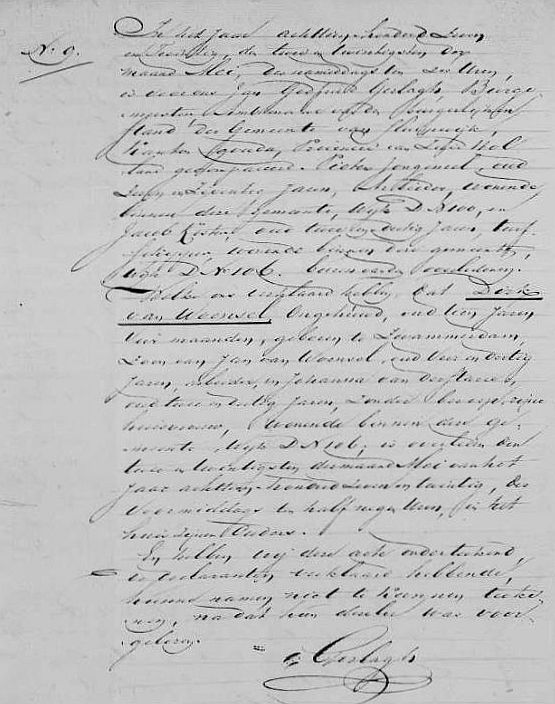 N. 9.
In het Jaar achttien honderd Zeven
en Twintig, den twee en twintigsten der
maand Mei, des namiddags ten Zes Uren,
is voor ons Jan Godfried Geslagh, Burge-
meester, Ambtenaar van den Burgerlijken
stand, der Gemeente van Sluipwijk,
Kanton Gouda, Provincie van Zuid Hol-
land gecompareerd. Pieter Jongeneel, oud
Zeven en Zeventig Jaren, Arbeider, wonende
binnen deze Gemeente, Wijk D N 100, en
Jacob Koster, oud twee en dertig Jaren, turf-
schipper, wonende binnen deze gemeente,
wijk D N. 106. buren van den overledenen.
Welke ons verklaard hebben, dat Dirk
van Woerwel Ongehuwd, oud tien Jaren
vier maanden, geboren te Zwammerdam,
Zoon van Jan van Woerwel, oud vier en dertig
Jaren, arbeider, en Johanna van
oud twee en dertig Jaren, Zonder beroep, zijne
huisvrouw, wonende binnen deze ge-
meente, Wijk D N 106, is overleden den
twee en twintigsten der maand Mei van het
Jaar achttien honderd Zeven en twintig, des
Voormiddags ten half negen Uren, in het
huis zijner Ouders.
En hebben wij deze acte onderteekend,
de declaranten verklaard hebbende,
hunne namen niet te kunnen teeke-
nen, na dat hun dezelve was voor-
gelezen.
Geslagh